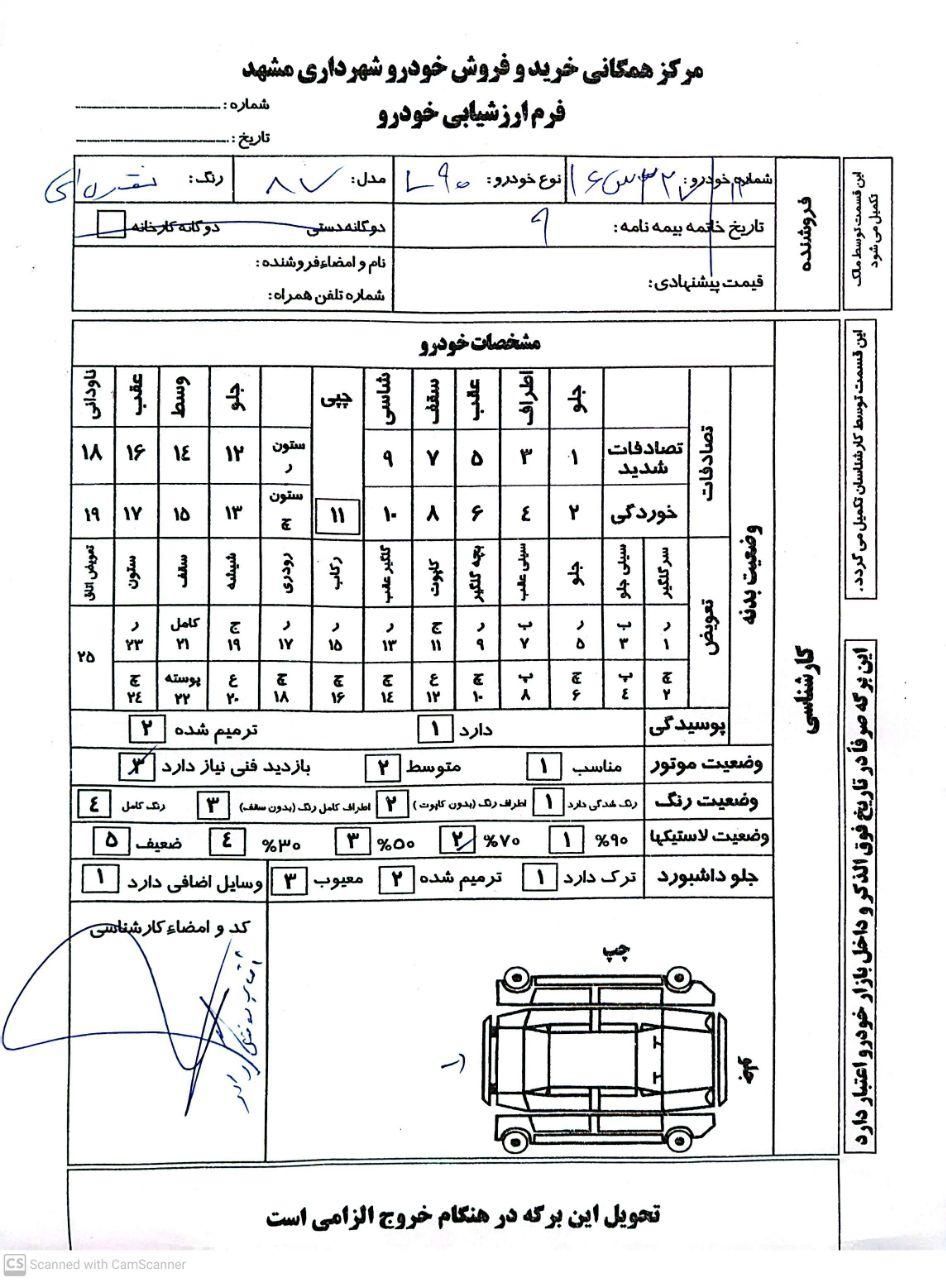 مرکز همگانی خرید و فروش خودرو شهرداری مشهد
فرم ارزشیابی خودرو
شماره :
تاریخ :
این قسمت توسط مالک تکمیل می شود
فروشنده
شماره خودرو: نوع خودرو: ال ۹۰ مدل: ۸۷ رنگ: نقره ای
تاریخ خاتمه بیمه نامه: ۹ دوگانه دستی دوگانه کارخانه
قیمت پیشنهادی: نام و امضاء فروشنده :
شماره تلفن همراه:
این قسمت توسط کارشناسان تکمیل می گردد.
این برگه صرفاً در تاریخ فوق الذکر و داخل بازار خودرو اعتبار دارد
کارشناسی
مشخصات خودرو
وضعیت بدنه
تصادفات
جلو اطراف عقب سقف شاسی چپی جلو وسط عقب ناودانی
تصادفات شدید ۱ ۳ ۵ ۷ ۹ ستون ر ۱۲ ۱۴ ۱۶ ۱۸
خوردگی ۲ ۴ ۶ ۸ ۱۰ ۱۱ ستون چ ۱۳ ۱۵ ۱۷ ۱۹
تعویض
سر گلگیر سینی جلو جلو سینی عقب بچه گلگیر کاپوت گلگیر عقب رکاب رودری شیشه سقف ستون تعویض اتاق
ر ۱ پ ۳ ر ۵ پ ۷ ر ۹ ج ۱۱ ر ۱۳ ر ۱۵ ر ۱۷ ج ۱۹ کامل ۲۱ ر ۲۳ ۲۵
چ ۲ پ ۴ چ ۶ پ ۸ چ ۱۰ ع ۱۲ چ ۱۴ چ ۱۶ چ ۱۸ ع ۲۰ پوسته ۲۲ چ ۲۴
پوسیدگی دارد ۱ ترمیم شده ۲
وضعیت موتور مناسب ۱ متوسط ۲ بازدید فنی نیاز دارد ۳
وضعیت رنگ رنگ شدگی دارد ۱ اطراف رنگ (بدون کاپوت) ۲ اطراف کامل رنگ (بدون سقف) ۳ رنگ کامل ۴
وضعیت لاستیکها ۹۰% ۱ ۷۰% ۲ ۵۰% ۳ ۳۰% ۴ ضعیف ۵
جلو داشبورد ترک دارد ۱ ترمیم شده ۲ معیوب ۳ وسایل اضافی دارد ۱
کد و امضاء کارشناسی
چپ
تحویل این برگه در هنگام خروج الزامی است
CS Scanned with CamScanner